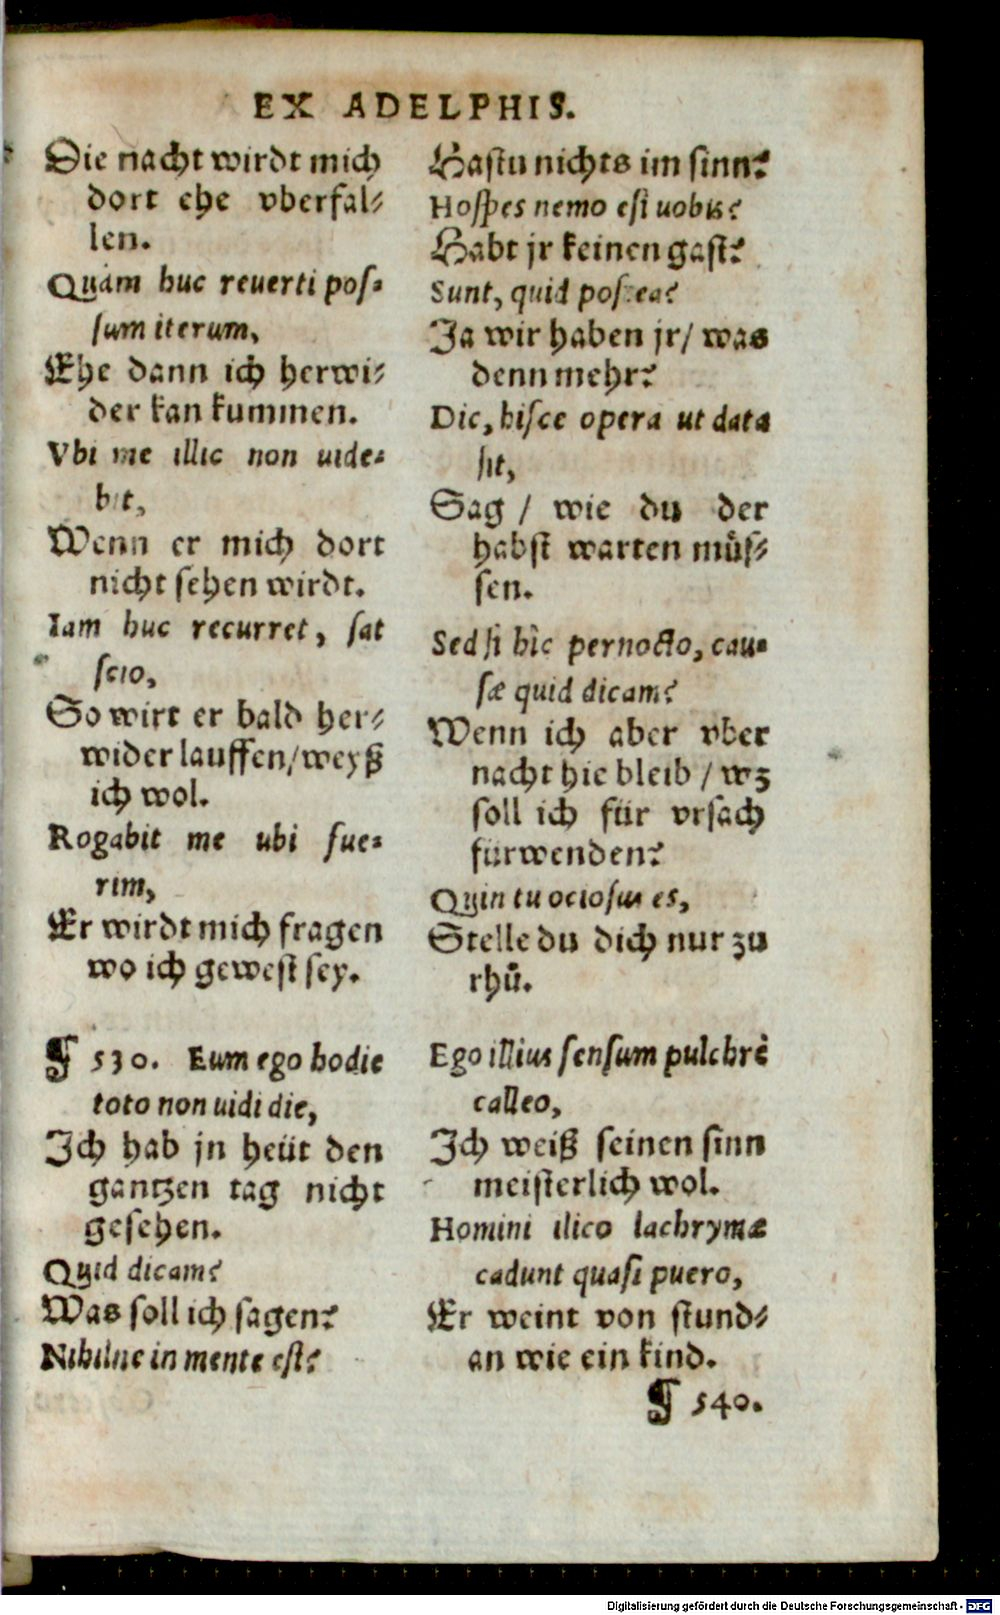 EX ADELPHIS.
Die nacht wirdt mich
dort ehe vberfal⸗
len.
Quàm huc reuerti pos-
sum iterum,
Ehe dann ich herwi⸗
der kan kummen.
Vbi me illic non uide-
bit,
Wenn er mich dort
nicht sehen wirdt.
Iam huc recurret, sat
scio,
So wirt er bald her⸗
wider lauffen/weyß
ich wol.
Rogabit me ubi fue-
rim,
Er wirdt mich fragen
wo ich gewest sey.
¶ 530. Eum ego hodie
toto non uidi die,
Ich hab jn heüt den
gantzen tag nicht
gesehen.
Quid dicam?
Was soll ich sagen?
Nihilne in mente est?
Hastu nichts im sinn?
Hospes nemo est uobis?
Habt jr keinen gast?
Sunt, quid postea?
Ja wir haben jr/ was
denn mehr?
Dic, hisce opera ut data
sit,
Sag / wie du der
habst warten müs⸗
sen.
Sed si hîc pernocto, cau-
sæ quid dicam?
Wenn ich aber vber
nacht hie bleib / wz
soll ich für vrsach
fürwenden?
Quin tu ociosus es,
Stelle du dich nur zu
rhů.
Ego illius sensum pulchrè
calleo,
Ich weiß seinen sinn
meisterlich wol.
Homini ilico lachrymæ
cadunt quasi puero,
Er weint von stund⸗
an wie ein kind.
¶ 540.
Digitalisierung gefördert durch die Deutsche Forschungsgemeinschaft - DFG